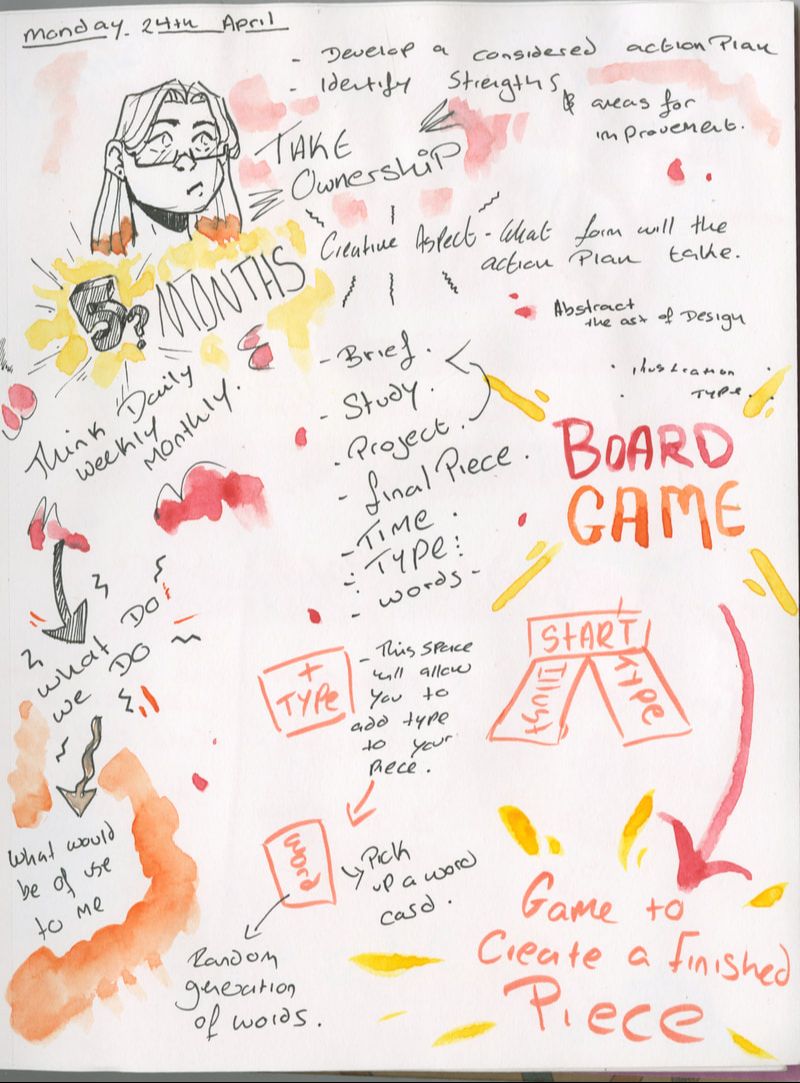 Monday. 24th April
- Develop a considered action Plan
- Identify Strengths
& areas for
improvement.
TAKE
OwnershiP
Creative Aspect - What form will the
action Plan take.
5? MONTHS
Abstract
the art of Design
· illustration
· TYPE.
Think Daily
weekly
Monthly.
- Brief.
- Study.
- Project.
- final Piece.
- TIME.
- TYPE:
- words-
BOARD
GAME
what DO
we DO
START
Illust
TYPE
+
TYPE
- This space
will allow
you to
add type
to your
Piece.
what would
be of use
to me
word
Pick
up a word
card.
Random
generation
of words.
Game to
Create a finished
Piece